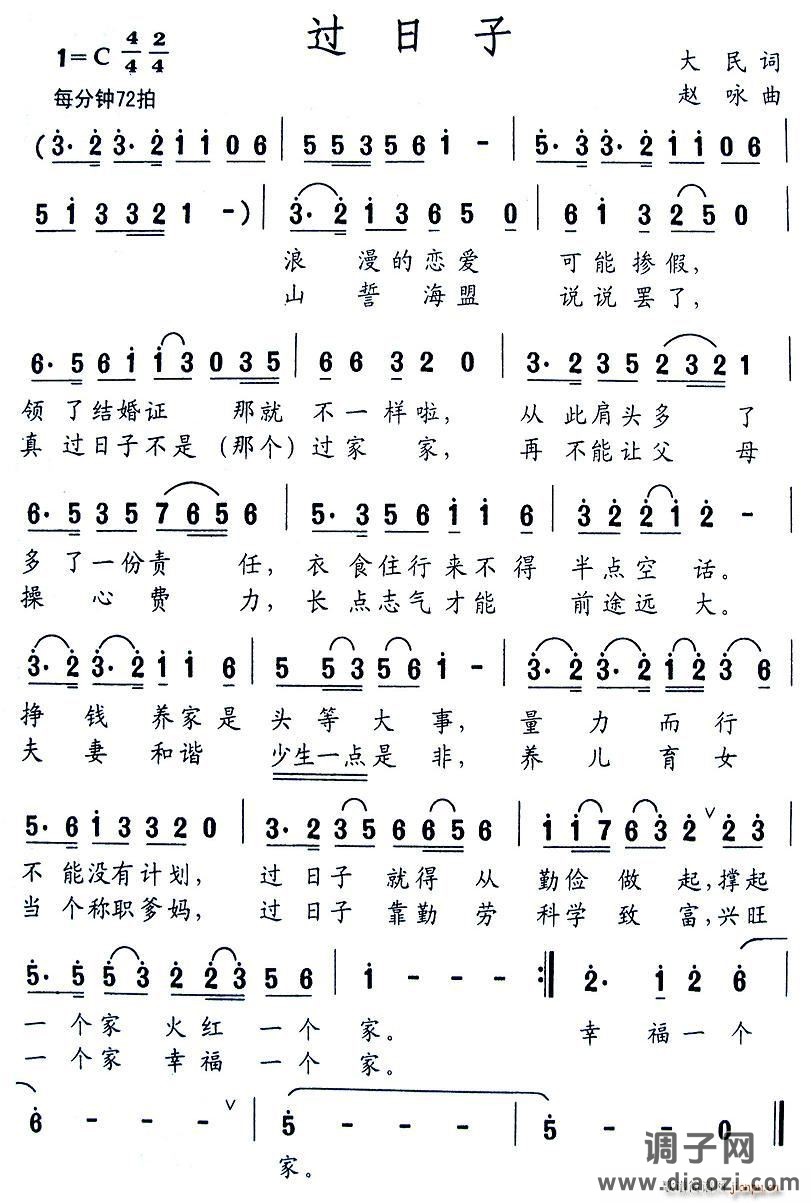 过日子
1=C 4/4 2/4
大民词
每分钟72拍
赵咏曲
(3·2 3·2 1 1 0 6 | 5 5 3 5 5 6 1 - | 5·3 3·2 1 1 0 6 |
5 1 3 3 2 1 -) | 3·2 1 3 6 5 0 | 6 1 3 2 5 0 |
浪漫的恋爱 可能掺假,
山誓海盟 说说罢了,
6·5 6 1 1 3 0 3 5 | 6 6 3 2 0 | 3·2 3 5 2 3 2 1 |
领了结婚证 那就不一样啦, 从此肩头多了
真过日子不是(那个)过家家, 再不能让父母
6·5 3 5 7 6 5 6 | 5·3 5 6 1 1 6 | 3 2 2 1 2 - |
多了一份责任, 衣食住行来不得半点空话。
操心费力, 长点志气才能前途远大。
3·2 3·2 1 1 6 | 5 5 3 5 6 1 - | 3·2 3·2 1 2 3 6 |
挣钱养家是头等大事, 量力而行
夫妻和谐少生一点是非, 养儿育女
5·6 1 3 3 2 0 | 3·2 3 5 6 6 5 6 | 1 1 7 6 3 2 ∨ 2 3 |
不能没有计划, 过日子就得从勤俭做起,撑起
当个称职爹妈, 过日子靠勤劳科学致富,兴旺
5·5 5 3 2 2 3 5 6 | 1 - :‖ 2· 1 2 6 |
一个家火红一个家。 幸福一个
一个家幸福一个家。
6 - - - ∨ | 5 - - - | 5 - - 0 ‖
家。
调子网
www.diaozi.com